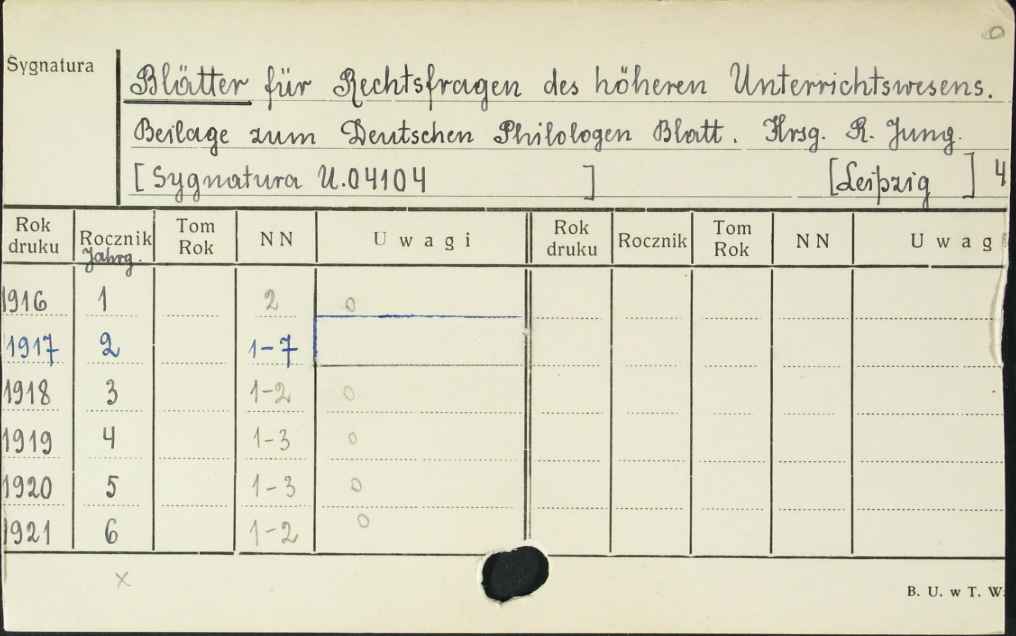 0
Sygnatura
Blätter für Rechtsfragen des höheren Unterrichtswesens.
Beilage zum Deutschen Philologen Blatt. Hrsg. R. Jung.
[Sygnatura U.04104 ] [Leipzig ] 4
Rok druku Rocznik Jahrg. Tom Rok NN Uwagi Rok druku Rocznik Tom Rok NN Uwag
1916 1 2 0
1917 2 1-7
1918 3 1-2 0
1919 4 1-3 0
1920 5 1-3 0
1921 6 1-2 0
x
B. U. w T. W.